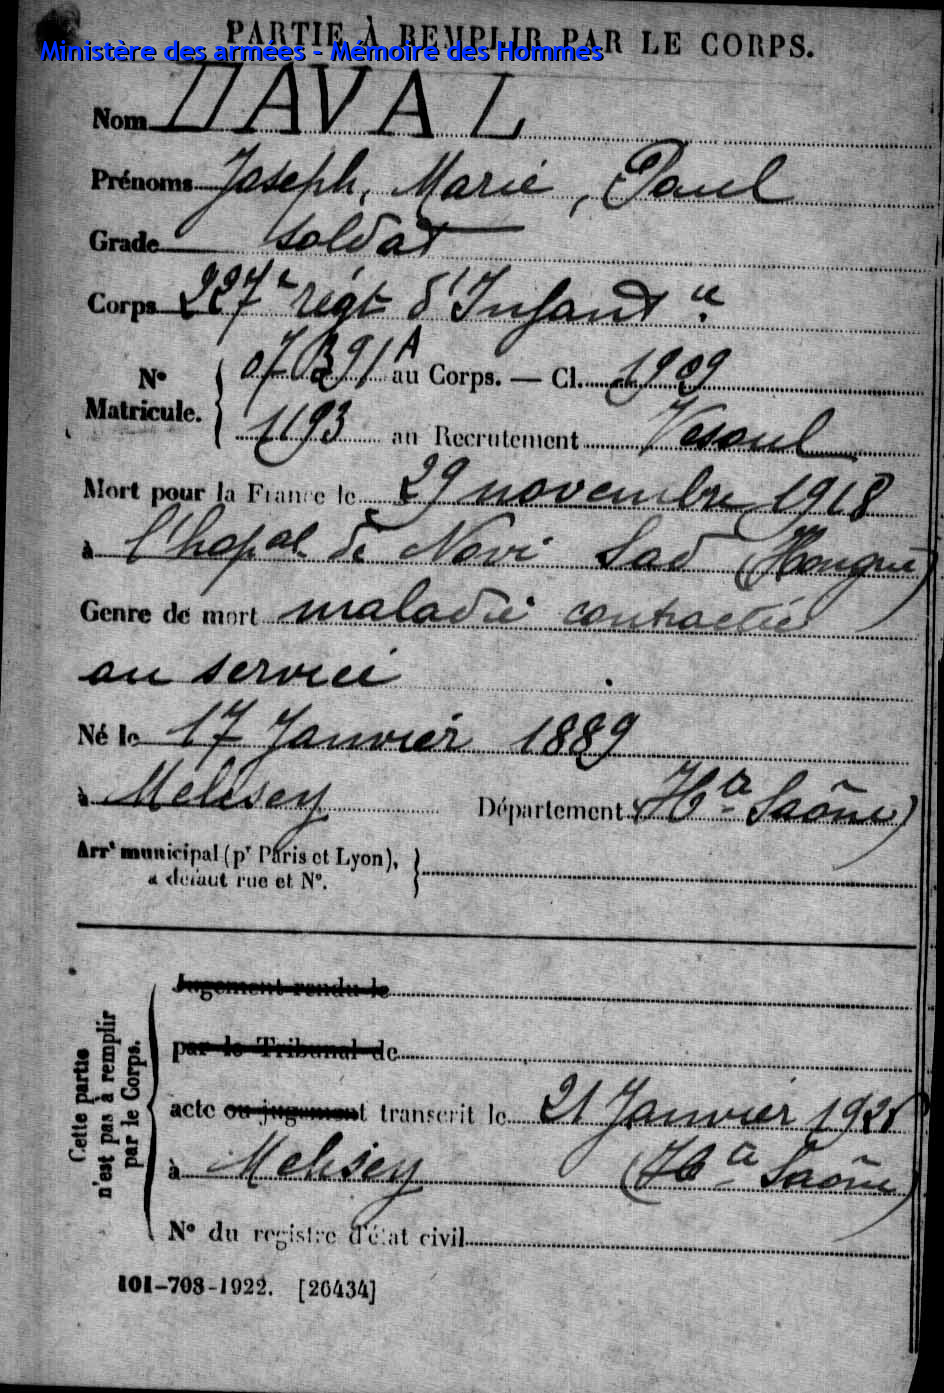 PARTIE À REMPLIR PAR LE CORPS.
Ministère des armées - Mémoire des Hommes
Nom DAVAL
Prénoms Joseph, Marie, Paul
Grade soldat
Corps 227e régt d'Infantie
N° Matricule. 07391A au Corps. — Cl. 1909
1193 au Recrutement Vesoul
Mort pour la France le 29 novembre 1918
à l'hopal de Novi Sad (Hongrie)
Genre de mort maladie contractée
au service
Né le 17 Janvier 1889
à Melisey Département (Hte Saône)
Arrt municipal (pr Paris et Lyon),
à défaut rue et N°.
Cette partie n'est pas à remplir par le Corps.
Jugement rendu le
par le Tribunal de
acte ou jugement transcrit le 21 Janvier
à Melisey (Hte Saône)
N° du registre d'état civil
101-708-1922. [26434]